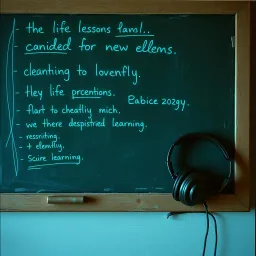 - the life lessons faml..
- canided for new ellems.
- cleanting to lovenfly.
- they life prcentions.
- flart to cheatliy mich.
Eabice 202gy.
- we there despistried learning.
- ressnriting.
- + elemfliy.
- Scure learning.